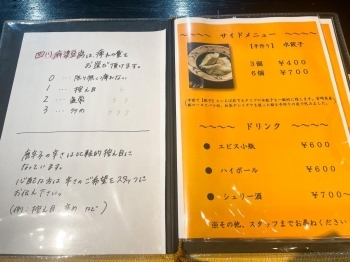 四川麻婆豆腐は、痺れの量を
お選び頂けます。
0 … 限り無く痺れない
1 … 控え目
2 … 通常
3 … 多め
唐辛子の辛さは比較的控え目に
なっています。
心配な方は辛さのご希望をスタッフに
お伝え下さい。
(例：控え目 多め など)
サイドメニュー
【手作り】 水餃子
3個 ¥400
6個 ¥700
ドリンク
● エビス小瓶 ¥600
● ハイボール ¥600
● シェリー酒 ¥700〜
※その他、スタッフまでお尋ねください